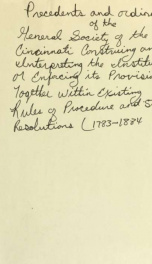 Precedents and ordin
of the
General Society of the
Cincinnati Construing an
Interpreting the Institu
or Enforcing its Provisio
Together Within Existing
Rules of Procedure and S
Resolutions (1783-1884